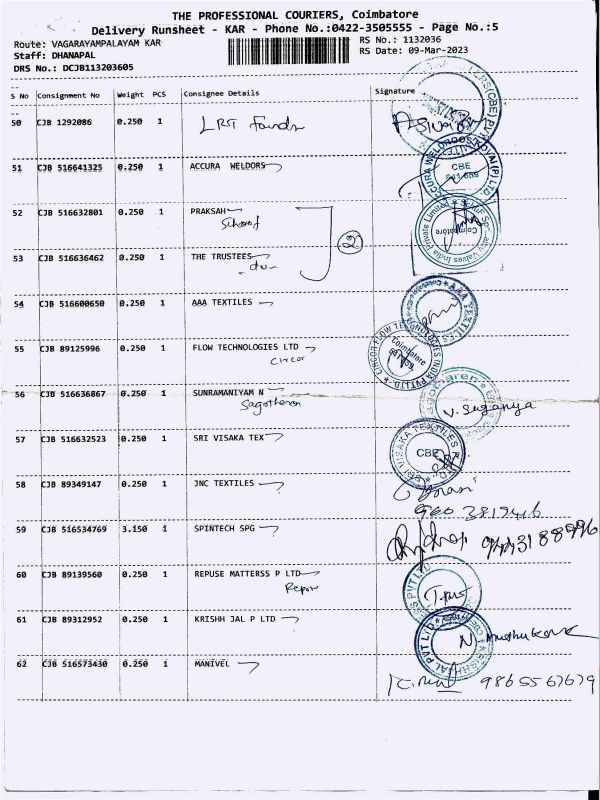 THE PROFESSIONAL COURIERS, Coimbatore
Delivery Runsheet - KAR - Phone No.:0422-3505555 - Page No.:5
Route: VAGARAYAMPALAYAM KAR
RS No.: 1132036
Staff: DHANAPAL
RS Date: 09-Mar-2023
DRS No.: DCJB113203605
S No Consignment No Weight PCS Consignee Details Signature
50 CJB 1292086 0.250 1 LRT
51 CJB 516641325 0.250 1 ACCURA WELDORS
CBE
641 659
52 CJB 516632801 0.250 1 PRAKSAH
2
Coimbatore
53 CJB 516636462 0.250 1 THE TRUSTEES
do
54 CJB 516600650 0.250 1 AAA TEXTILES
AAA TEXTILES
55 CJB 89125996 0.250 1 FLOW TECHNOLOGIES LTD
Circor
CIRCOR FLOW TECHNOLOGIES INDIA PVT LTD
Coimbatore
56 CJB 516636867 0.250 1 SUNRAMANIYAM N
V. Suganya
57 CJB 516632523 0.250 1 SRI VISAKA TEX
SRI VISAKA TEXTILES
CBE
58 CJB 89349147 0.250 1 JNC TEXTILES
59 CJB 516534769 3.150 1 SPINTECH SPG
60 CJB 89139560 0.250 1 REPUSE MATTERSS P LTD
61 CJB 89312952 0.250 1 KRISHH JAL P LTD
62 CJB 516573430 0.250 1 MANIVEL
9865567679